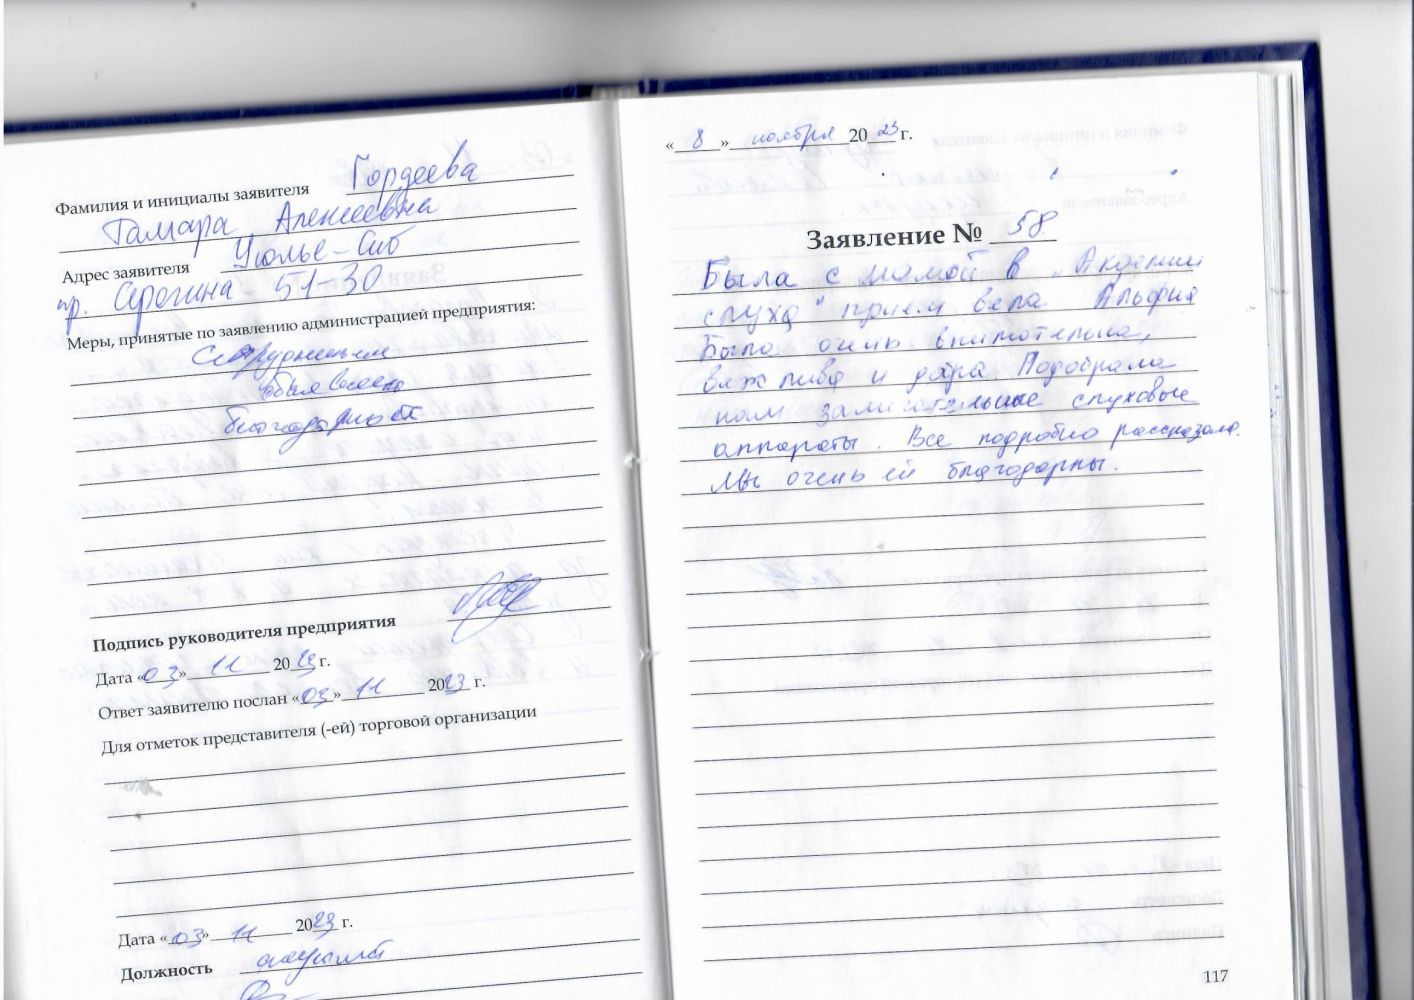 Фамилия и инициалы заявителя Гордеева
Тамара Алексеевна
Адрес заявителя Усолье-Сиб
пр. Серегина 51-30
Меры, принятые по заявлению администрацией предприятия:
Сотрудникам
объявлена
благодарность
Подпись руководителя предприятия
Дата «03» 11 2023 г.
Ответ заявителю послан «03» 11 2023 г.
Для отметок представителя (-ей) торговой организации
Дата «03» 11 2023 г.
Должность
«8» ноября 2023 г.
Заявление № 58
Была с мамой в "Академии
слуха" прием вела Альфия
Была очень внимательна,
вежлива и добра. Подобрала
нам замечательные слуховые
аппараты. Все подробно рассказала.
Мы очень ей благодарны.
117